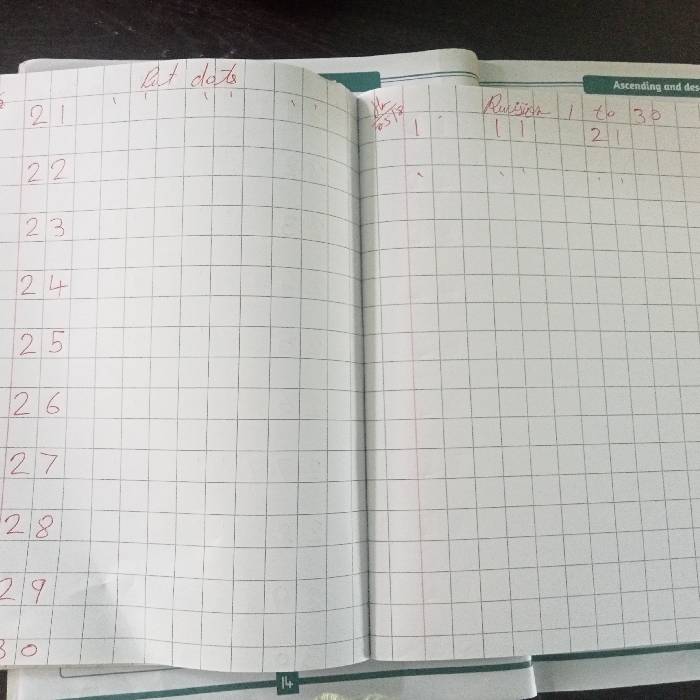 Put dots
21
22
23
24
25
26
27
28
29
30
Ascending and des
Revision 1 to 30
1 11 21
14